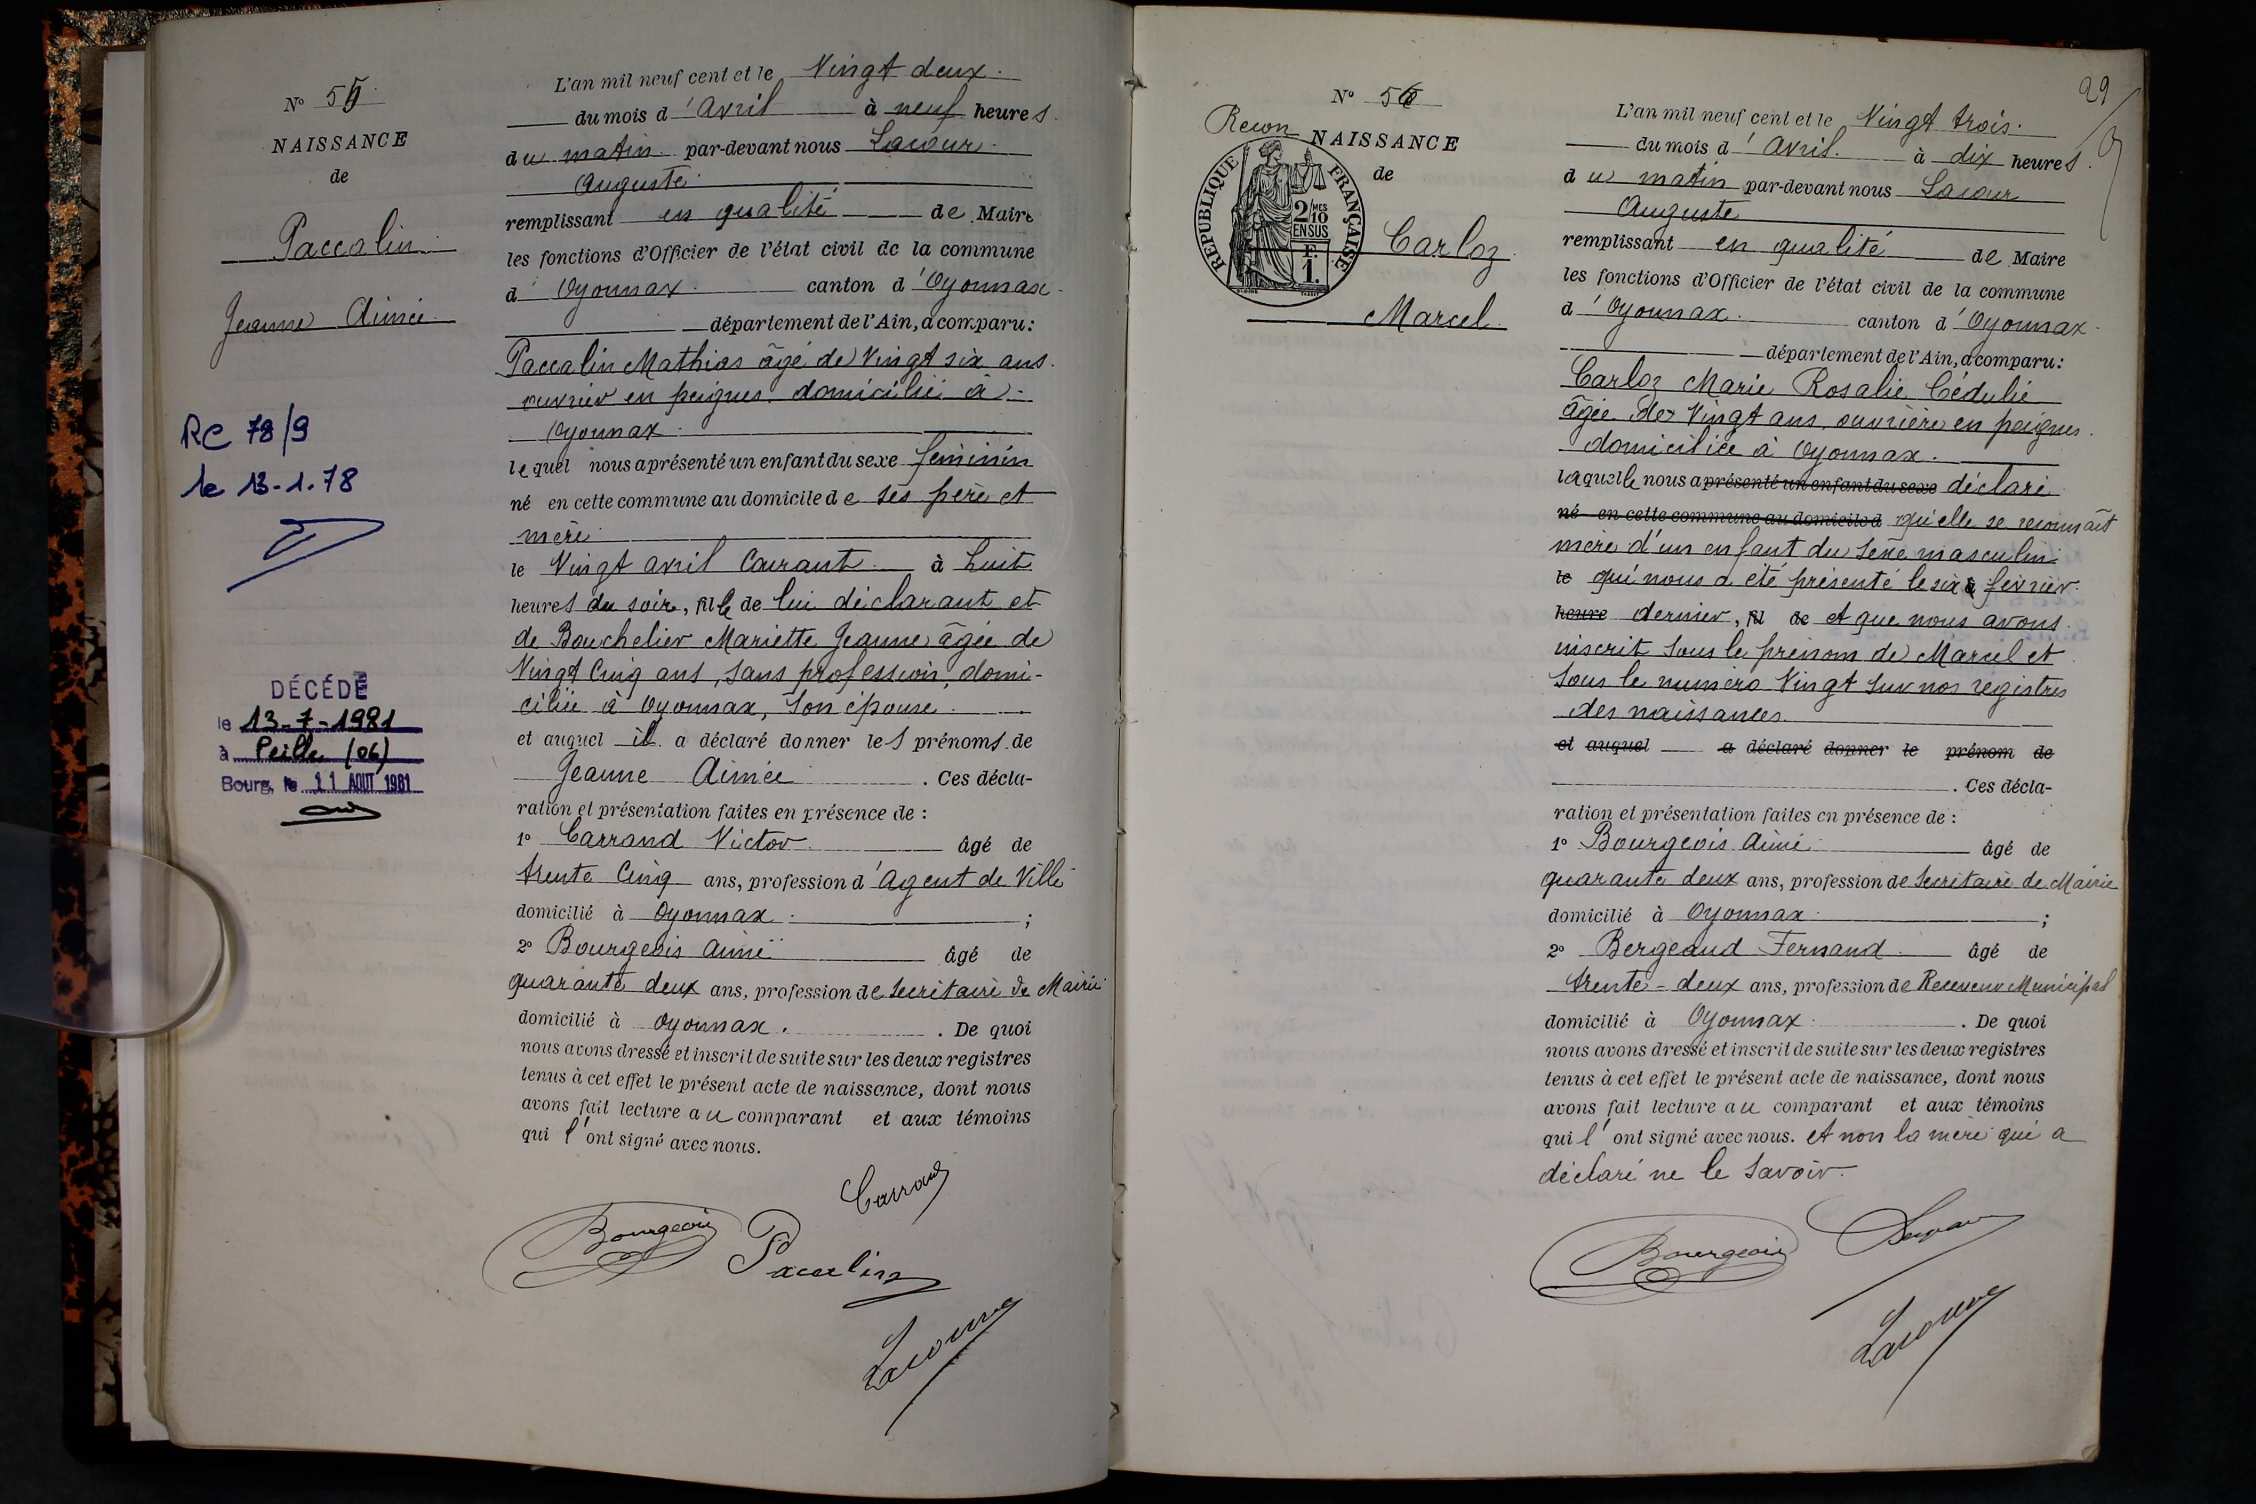 N° 55
NAISSANCE
de
Paccalin
Jeanne Aimée
RC 78/9
le 13-1-78
DÉCÉDÉ
le 13-7-1981
à Peille (06)
Bourg, le 11 AOUT 1981
L'an mil neuf cent et le Vingt deux
du mois d'avril à neuf heures
du matin par-devant nous Lacour
Auguste
remplissant en qualité de Maire
les fonctions d'Officier de l'état civil de la commune
d'Oyonnax canton d'Oyonnax
département de l'Ain, a comparu:
Paccalin Mathias âgé de Vingt six ans
ouvrier en peignes domicilié à
Oyonnax
lequel nous a présenté un enfant du sexe féminin
né en cette commune au domicile de ses père et
mère
le Vingt avril Courant à huit
heures du soir, fille de lui déclarant et
de Bouchelier Mariette Jeanne âgée de
Vingt Cinq ans, sans profession, domi-
ciliée à Oyonnax, son épouse
et auquel il a déclaré donner les prénoms de
Jeanne Aimée. Ces décla-
ration et présentation faites en présence de :
1° Carrand Victor âgé de
trente Cinq ans, profession d'Agent de Ville
domicilié à Oyonnax ;
2° Bourgeois Aimé âgé de
quarante deux ans, profession de Secrétaire de Mairie
domicilié à Oyonnax. De quoi
nous avons dressé et inscrit de suite sur les deux registres
tenus à cet effet le présent acte de naissance, dont nous
avons fait lecture au comparant et aux témoins
qui l'ont signé avec nous.
Carrand
Bourgeois Paccalin
Lacour
29
N° 56
Recon NAISSANCE
de
RÉPUBLIQUE FRANÇAISE
2/10 MES
EN SUS
F.
1.
Carloz
Marcel
L'an mil neuf cent et le Vingt trois
du mois d'Avril à dix heures
du matin par-devant nous Lacour
Auguste
remplissant en qualité de Maire
les fonctions d'Officier de l'état civil de la commune
d'Oyonnax canton d'Oyonnax
département de l'Ain, a comparu:
Carloz Marie Rosalie Cédulie
âgée de Vingt ans, ouvrière en peignes
domiciliée à Oyonnax.
laquelle nous a présenté un enfant du sexe déclaré
né en cette commune au domicile d qu'elle se reconnaît
mère d'un enfant du sexe masculin
le qui nous a été présenté le six à février
heure dernier, fil de et que nous avons
inscrit sous le prénom de Marcel et
sous le numéro Vingt sur nos registres
des naissances
et auquel a déclaré donner le prénom de
. Ces décla-
ration et présentation faites en présence de :
1° Bourgeois Aimé âgé de
quarante deux ans, profession de Secrétaire de Mairie
domicilié à Oyonnax ;
2° Bergeaud Fernand âgé de
trente-deux ans, profession de Receveur Municipal
domicilié à Oyonnax. De quoi
nous avons dressé et inscrit de suite sur les deux registres
tenus à cet effet le présent acte de naissance, dont nous
avons fait lecture au comparant et aux témoins
qui l'ont signé avec nous. et non la mère qui a
déclaré ne le savoir.
Bourgeois
Lacour